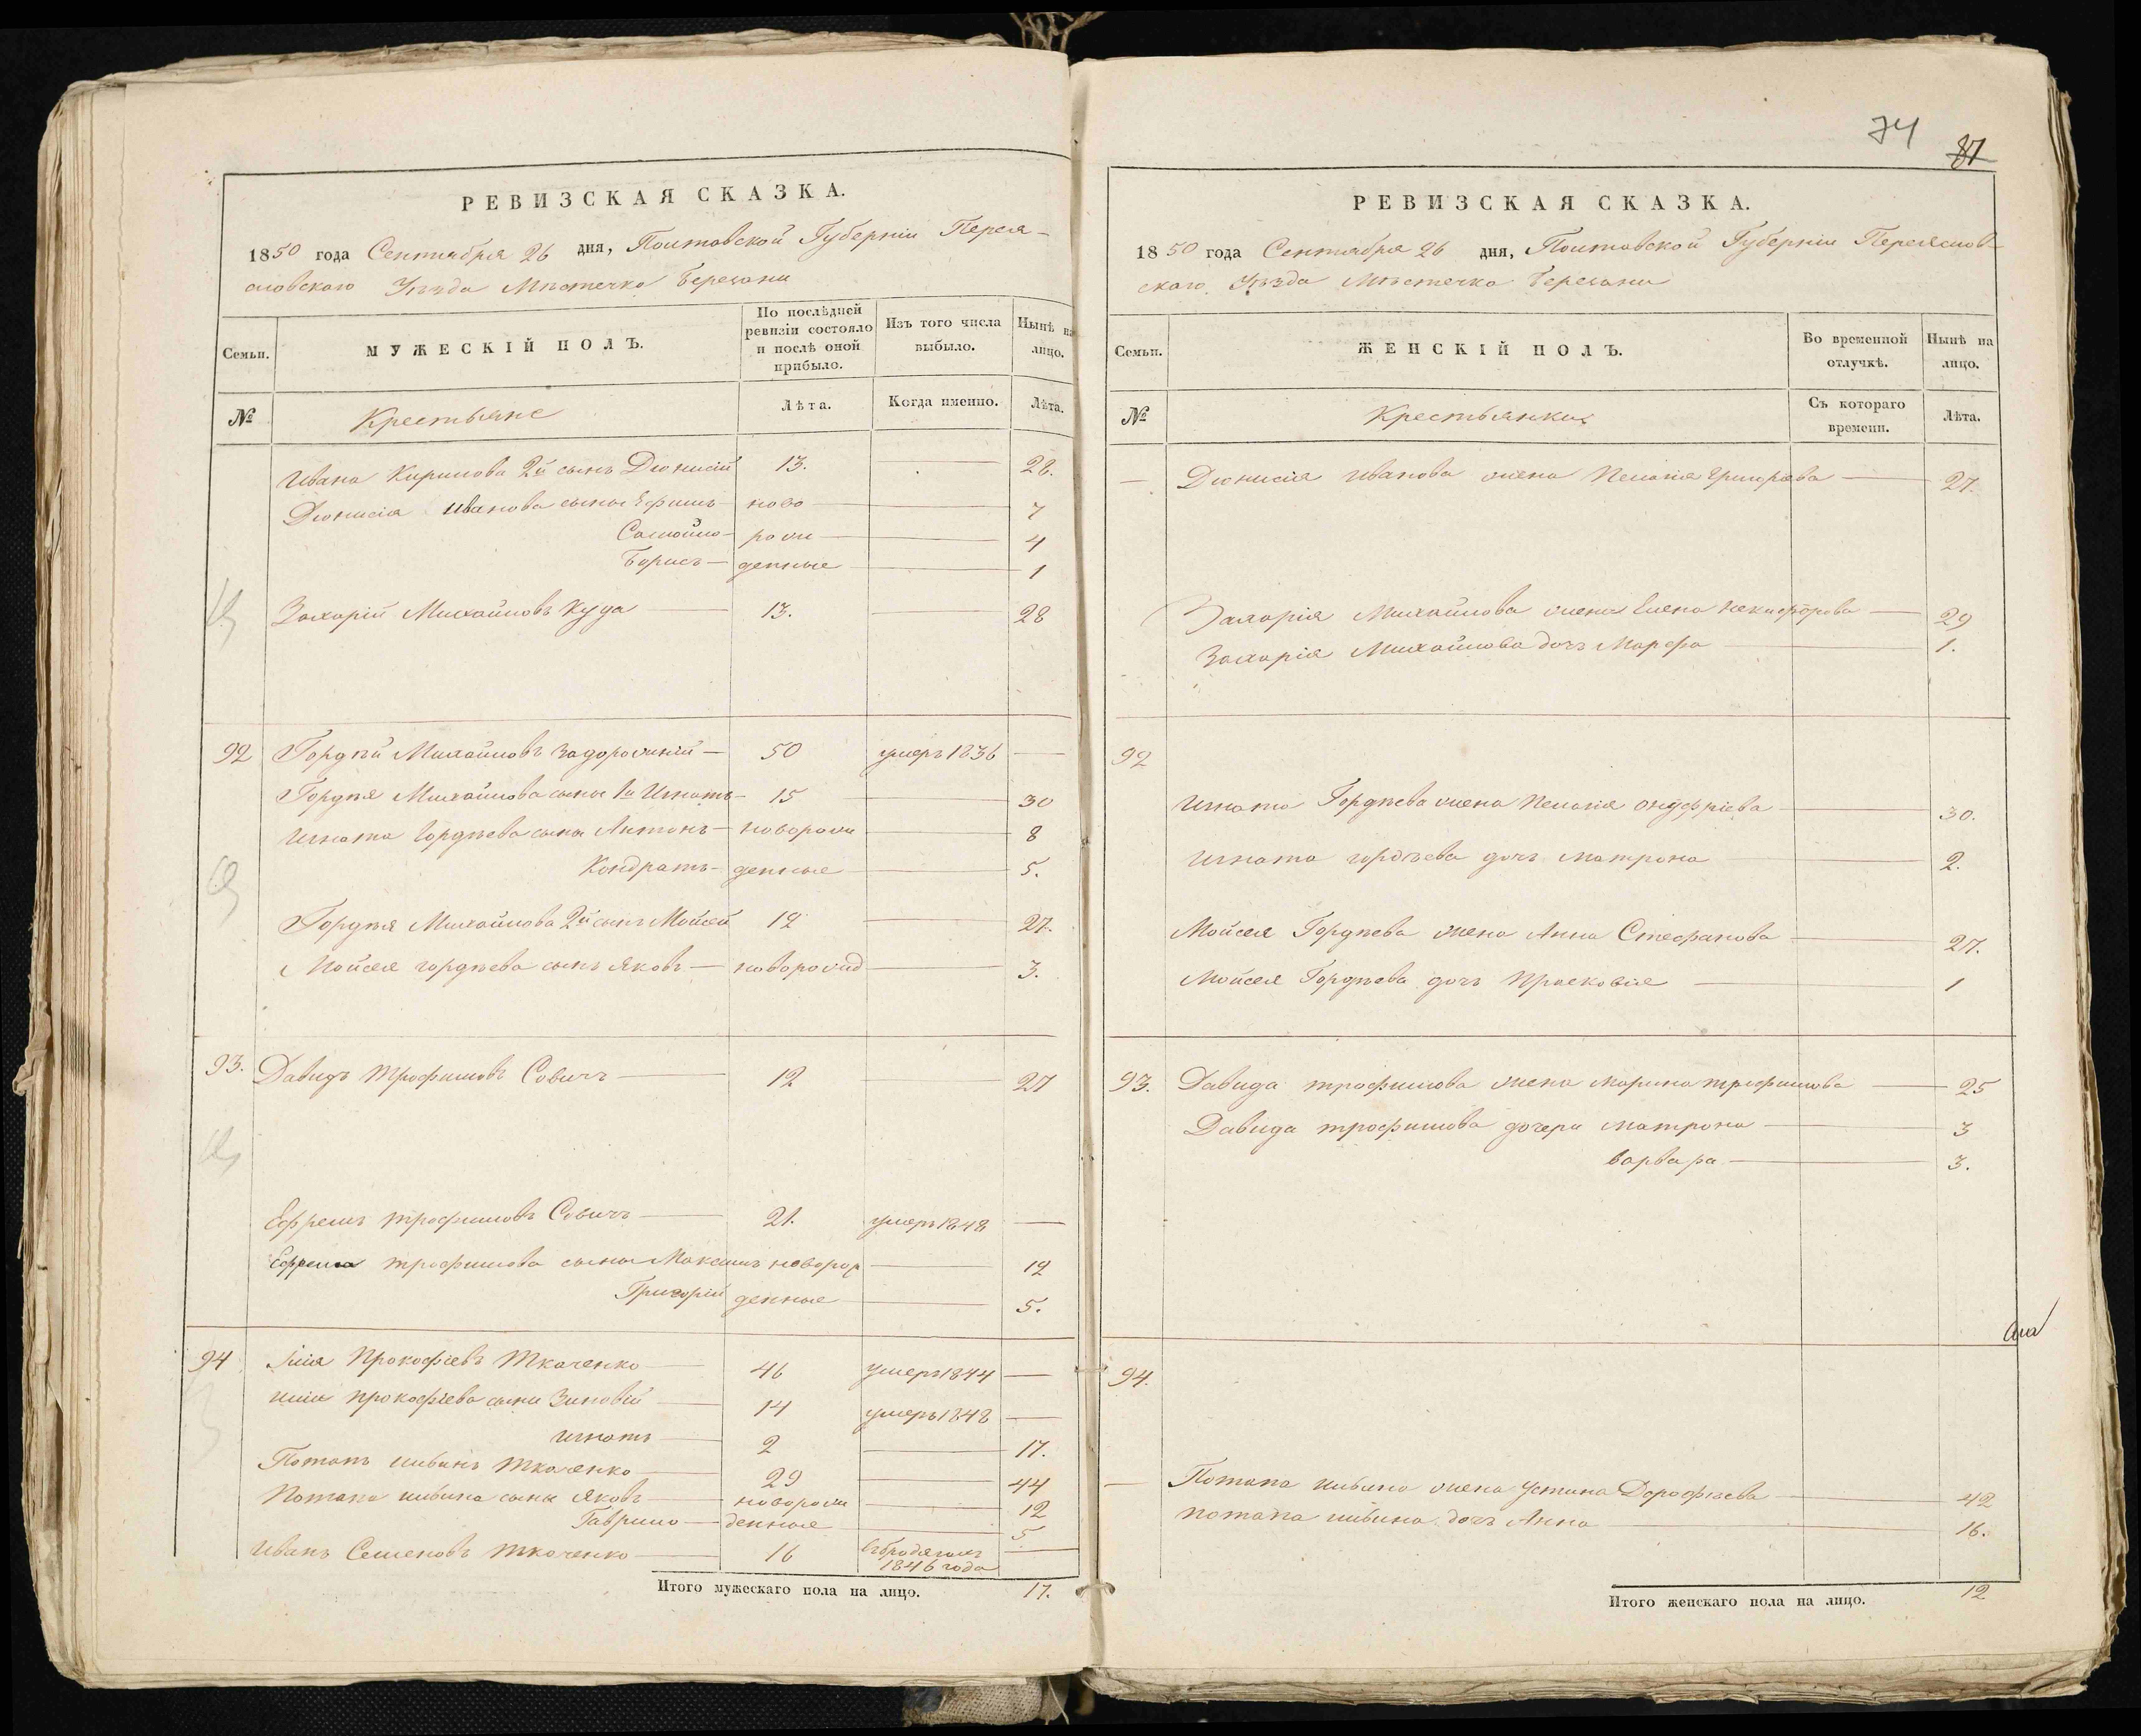 74
87
РЕВИЗСКАЯ СКАЗКА.
1850 года Сентября 26 дня, Полтавской Губерніи Перея-
славского Уѣзда Мѣстечка Березани
Семьи.
МУЖЕСКІЙ ПОЛЪ.
По послѣдней ревизіи состояло и послѣ оной прибыло.
Изъ того числа выбыло.
Нынѣ на лицо.
№
Крестьяне
Лѣта.
Когда именно.
Лѣта.
Ивана Кирилова 2й сынъ Діонисій 13. 28.
Діонисія Иванова сыны Ефимъ ново 7
Самойло рож 4
Борисъ денные 1
Захарій Михайловъ Куца 13. 28
92 Гордѣй Михайловъ Задорожній 50 умеръ 1836
Гордѣя Михайлова сыны 1й Игнатъ 15 30
Игната Гордѣева сыны Антонъ новорож 8
Кондратъ денные 5.
Гордѣя Михайлова 2й сынъ Мойсей 12 27.
Мойсея Гордѣева сынъ Яковъ новорожд 3.
93. Давидъ Трофимовъ Совичъ 12 27
Ефремъ Трофимовъ Совичъ 21. умеръ 1848
Ефрема Трофимова сыны Максимъ новорож 12
Григорій денные 5.
94 Илія Прокофіевъ Ткаченко 46 умеръ 1844
Иліи Прокофіева сыны Зиновій 14 умеръ 1848
Игнатъ 2 17.
Потапъ Ильинъ Ткаченко 29 44
Потапа Ильина сыны Яковъ новорож 12
Гаврило денные 5
Иванъ Семеновъ Ткаченко 16 въ бродягахъ 1846 года
Итого мужескаго пола на лицо. 17.
РЕВИЗСКАЯ СКАЗКА.
1850 года Сентября 26 дня, Полтавской Губерніи Переяслов-
ского Уѣзда Мѣстечка Березани
Семьи.
ЖЕНСКІЙ ПОЛЪ.
Во временной отлучкѣ.
Нынѣ на лицо.
№
Крестьянки
Съ котораго времени.
Лѣта.
Діонисія Иванова жена Пелагія 27.
Захарія Михайлова жена Елена Никифорова 29
Захарія Михайлова дочь Марфа 1.
92
Игната Гордѣева жена Пелагія Онуфріева 30.
Игната Гордѣева дочь Матрона 2.
Мойсея Гордѣева жена Анна Стефанова 27.
Мойсея Гордѣева дочь Просковія 1
93. Давида Трофимова жена Марина Трофимова 25
Давида Трофимова дочери Матрона 3
Варвара 3.
94.
Потапа Ильина жена Устина Дорофіева 42
Потапа Ильина дочь Анна 16.
Итого женскаго пола на лицо. 12